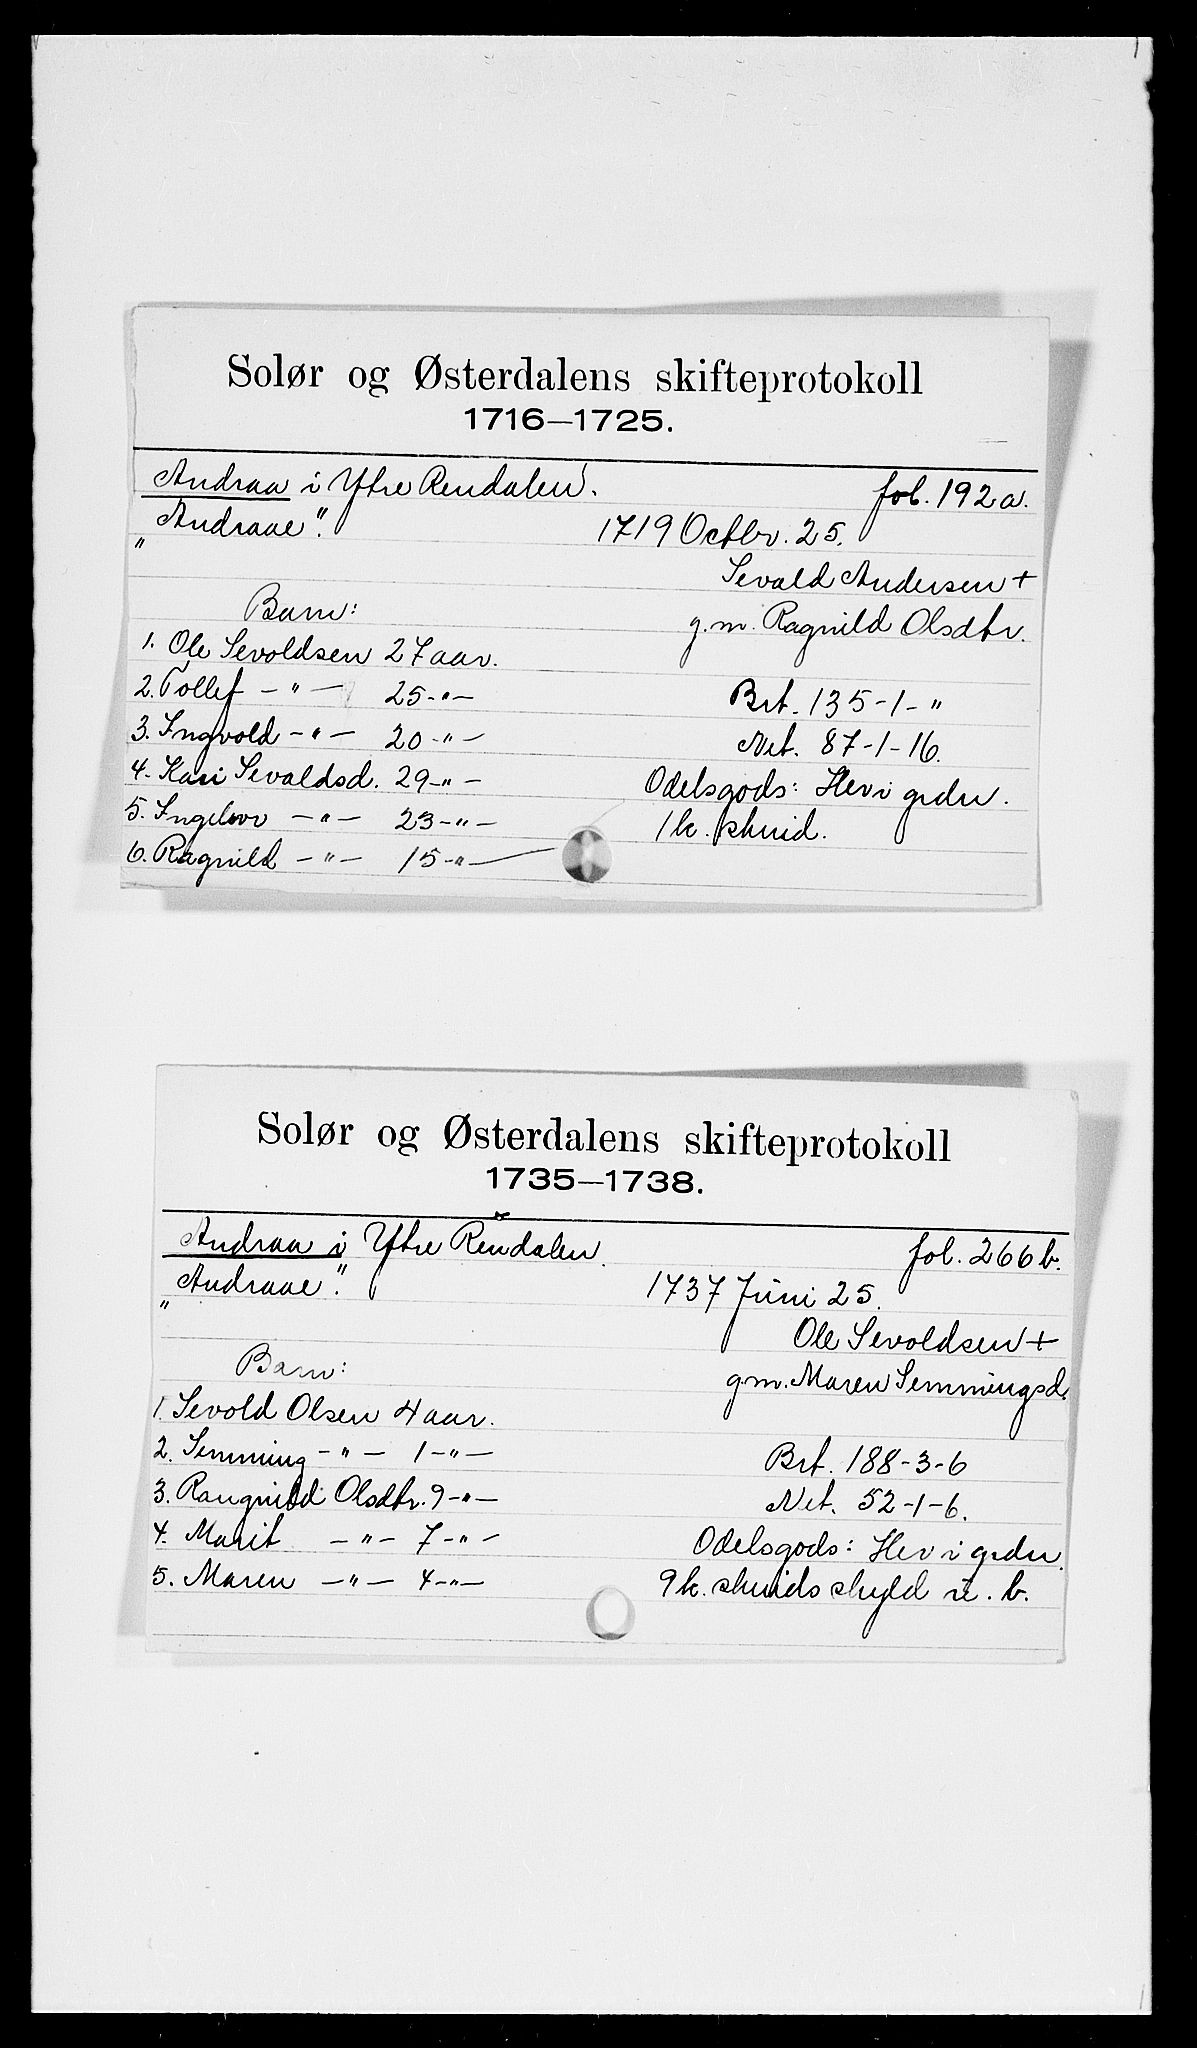 Solør og Østerdalens skifteprotokoll
1716—1725.
Andraa i Ytre Rendalen. fol. 192a.
"Andraae". 1719 Octbr. 25.
Sevald Andersen +
Barn: g.m. Ragnild Olsdtr.
1. Ole Sevoldsen 27 aar.
2. Tollef — " — 25 - " — Brt. 135-1- "
3. Ingvold — " — 20 - " — Net. 87-1-16.
4. Kari Sevaldsd. 29 - " — Odelsgods: Her i grdn.
5. Ingebor — " — 23 - " — 1 k. skind.
6. Ragnild — " — 15 - " —
Solør og Østerdalens skifteprotokoll
1735—1738.
Andraa i Ytre Rendalen. fol. 266b.
"Andraae". 1737 Juni 25.
Ole Sevoldsen +
Barn: g.m. Maren Semmingsd.
1. Sevold Olsen 4 aar.
2. Semming — " — 1 - " — Brt. 188-3-6
3. Rangnild Olsdtr. 9 - " — Net. 52-1-6.
4. Marit — " — 7 - " — Odelsgods: Her i grdn.
5. Maren — " — 4 - " — 9 k. skinds skyld u. b.